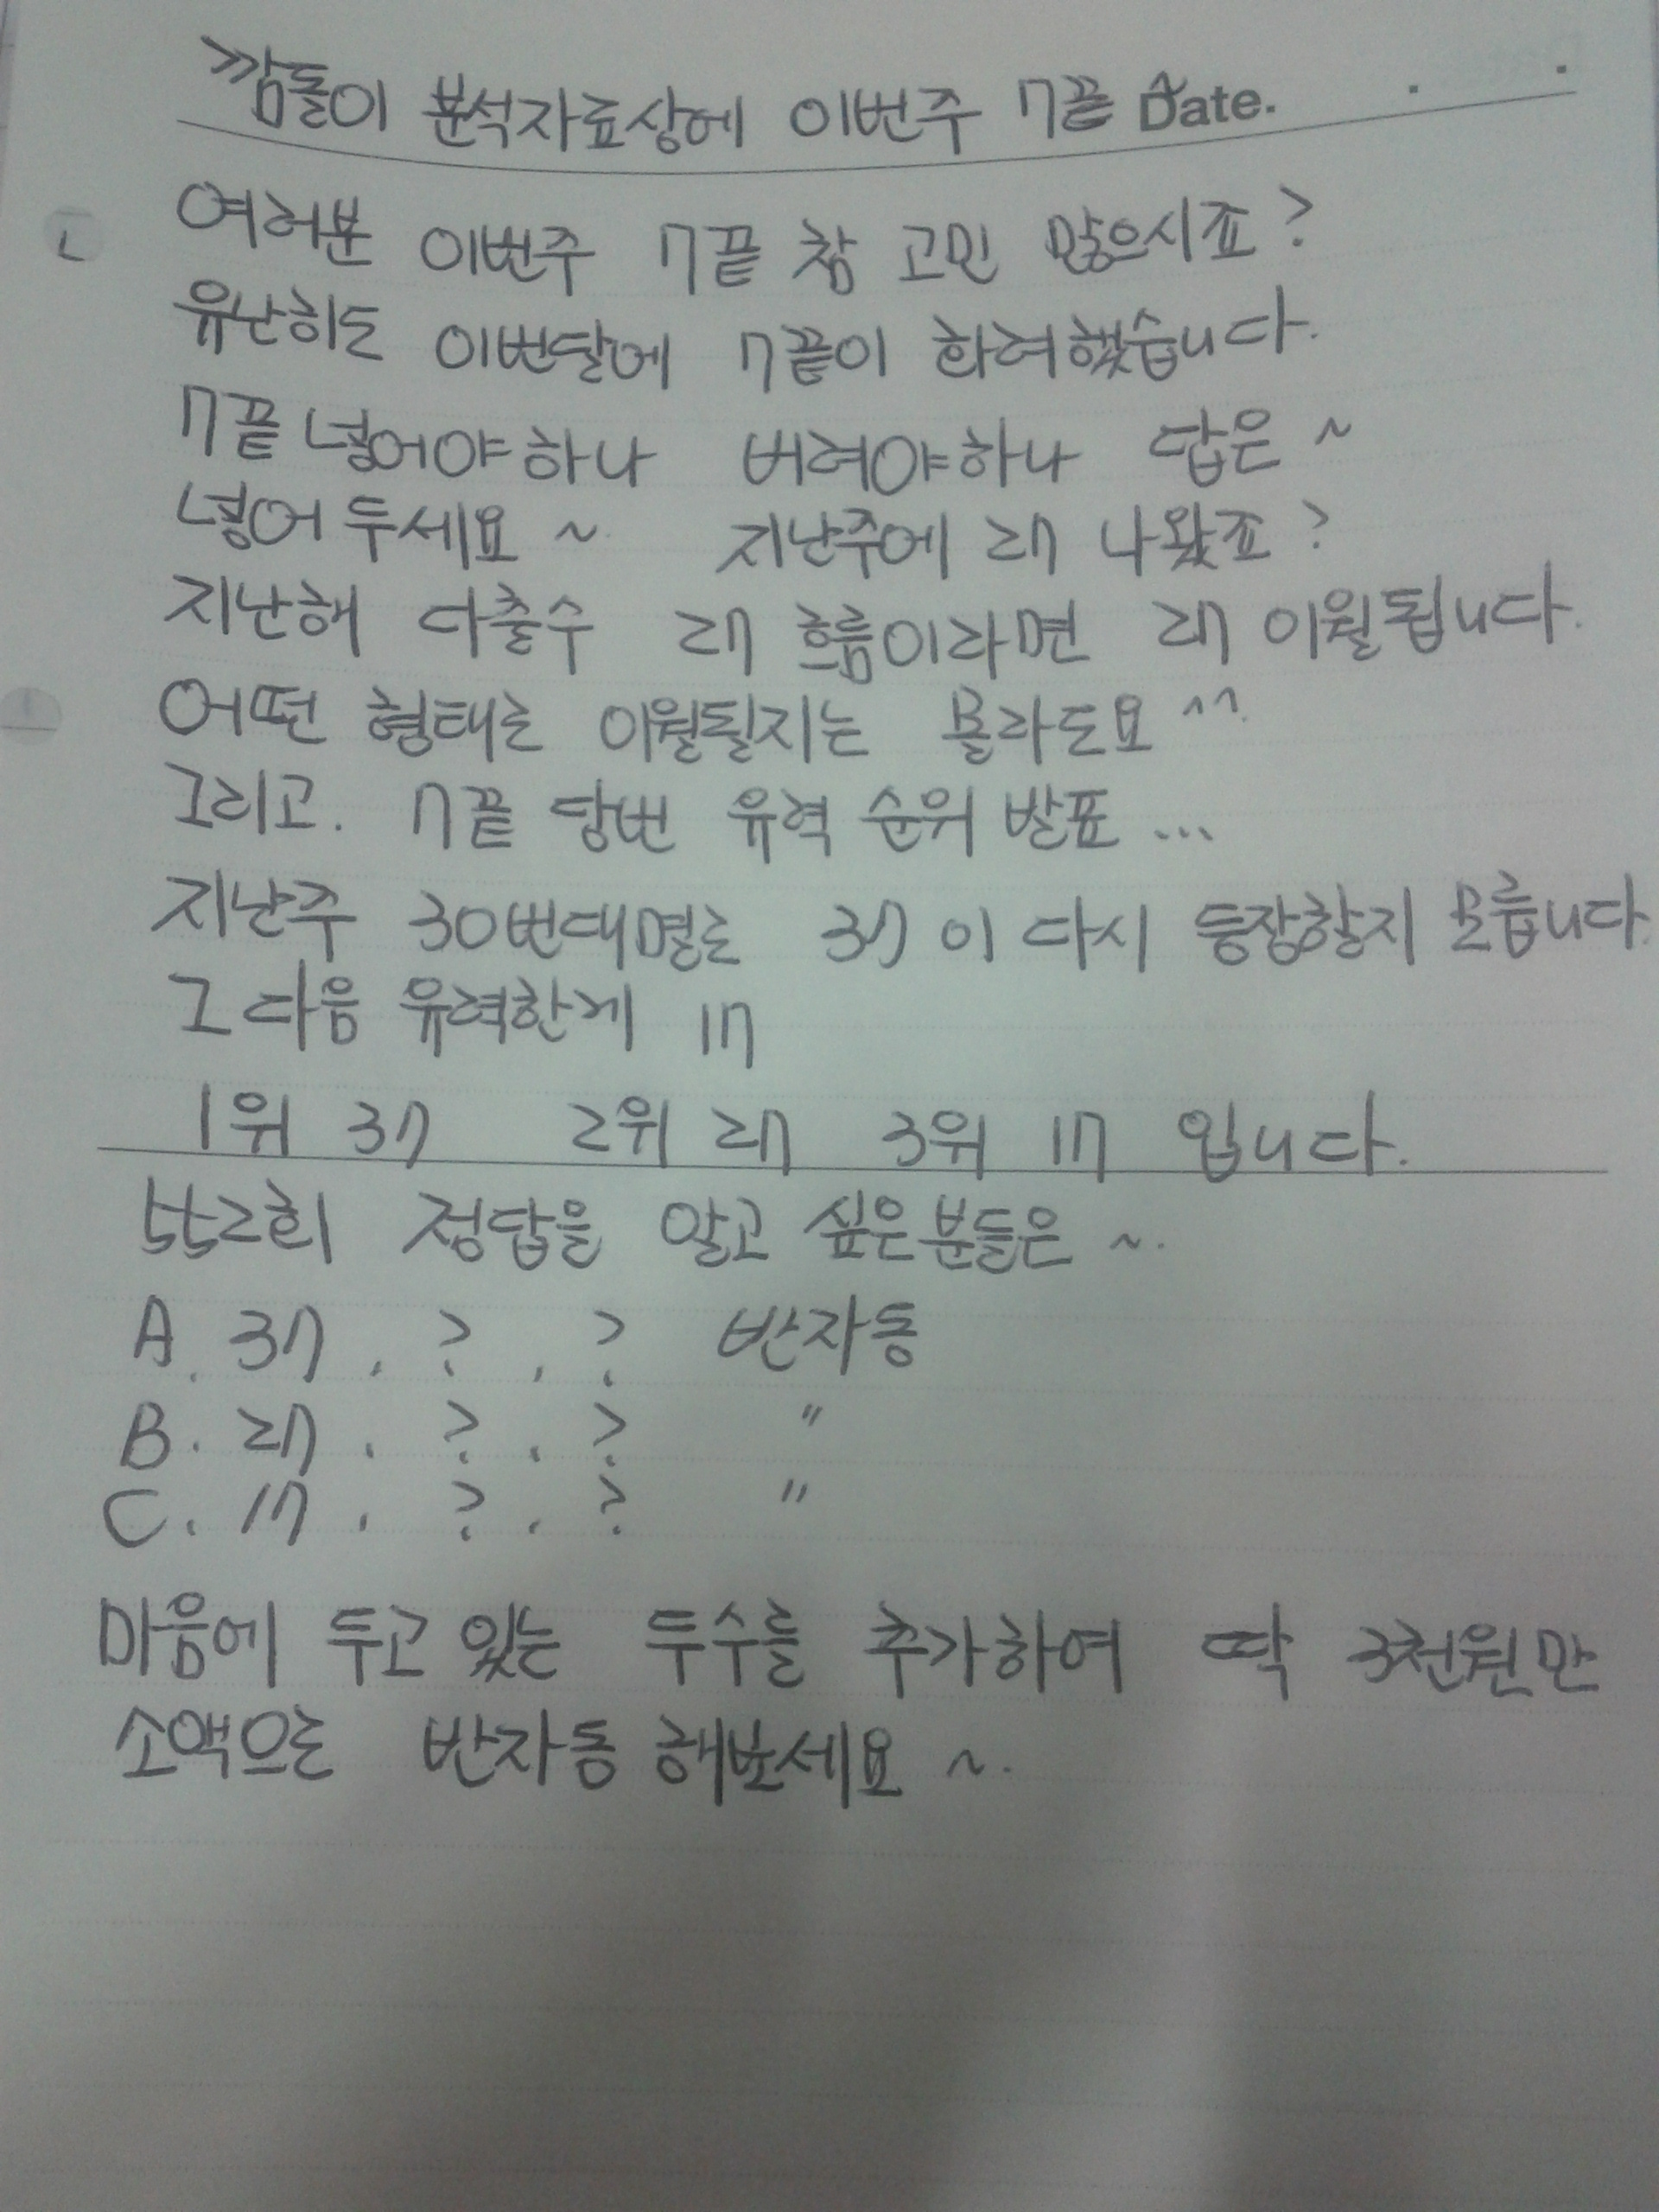 깜돌이 분석자료상에 이번주 7끝 ~ Date.
여러분 이번주 7끝 참 고민 많으시죠?
유난히도 이번달에 7끝이 화려했습니다.
7끝 넣어야하나 버려야하나 답은 ~
넣어 두세요 ~ 지난주에 27 나왔죠?
지난해 다출수 27 흐름이라면 27 이월됩니다.
어떤 형태로 이월될지는 몰라도요 ^^
그리고. 7끝 당번 유력 순위 발표 ...
지난주 30번대멸로 37이 다시 등장할지 모릅니다.
그 다음 유력한게 17
1위 37 2위 27 3위 17 입니다.
552회 정답을 알고 싶은분들은 ~.
A. 37 . ? . ? 반자동
B. 27 . ? . ? "
C. 17 . ? . ? "
마음에 두고 있는 두수를 추가하여 딱 3천원만
소액으로 반자동 해보세요 ~.